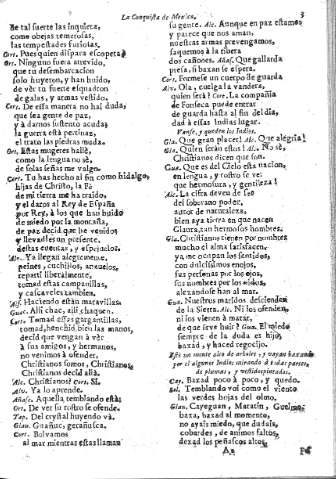 La Conquista de Mexico,
3
De tal suerte las inquieta,
como obejas temerosas,
las tempestades furiosas.
Cor. Pues quien dispara escopeta?
Or. Ninguno fuera atrevido,
que tu desembarcacion
solo huyeron, y han huido,
de vèr tu fuerte esquadron
de galas, y armas vestido.
Cor. De essa manera no hai duda,
que sea gente de paz,
y à darnos sustento acuda;
la guerra està pertinaz,
el trato las piedras muda.
Or. Estas mugeres hallè,
como la lengua no sè,
de solas señas me valgo.
Cor. Tu has hecho al fin como hidalgo,
hijas de Christo, la Fè
de mi tierra me ha traìdo,
y el daros al Rey de España
por Rey, à los que han huido
de miedo por la montaña,
de paz decid que he venido;
y llevadles un presente,
destas cuentas, y espejuelos.
Al. Ya llegan alegremente.
peines, cuchillos, anzuelos,
repartì liberalmente,
tomad estas campanillas,
y cascaveles tambien.
Alf. Haciendo estàn maravillas.
Guac. Alli chac, alli chaquen.
Cort. Tomad estas gargantillas,
tomad, henchid bien las manos,
decid que vengan à vèr
à sus amigos, y hermanos,
no venimos à ofender,
Christianos somos, Christianos,
Christianos decid allà.
Alc. Christianos? Cort. Si.
Alv. Ya lo aprende.
Añasc. Aquella temblando està:
Ort. De ver su rostro se ofende.
Tap. Del crystal huyendo và.
Glau. Guañuc, gerañusca.
Cort. Bolvamos
al mar mientras estas llaman
su gente. Alv. Aunque en paz estamos
y parece que nos aman,
nuestras armas prevengamos,
saquemos à la ribera
dos cañones. Añasc. Que gallarda
presa, si baxan se espera.
Cor. Formese un cuerpo de guarda
Alv. Ola, cuelga la vandera,
quien serà? Cor. La compañia
de Fonseca puede entrar
de guarda hasta al fin del dia,
dad à essas Indias lugar.
Vanse, y queden las Indias.
Gua. Què gran placer! Alc. Què alegria!
Gla. Quien seràn estos? Alc. No sè,
Christianos dicen que son.
Gua. Que es del Cielo esta nacion,
en lengua, y rostro se vè:
què hermosura, y gentileza!
Alc. La cifra deven de ser
del soberano poder,
autor de naturaleza,
bien aya tierra en que nacen
Glaura, tan hermosos hombres.
Gla. Christianos tienen por nombres
mucho el alma satisfacen,
ya me ocupan los sentidos,
con dulcissimos enojos,
sus personas por los ojos,
sus nombres por los oìdos,
alexandose han al mar.
Gua. Nuestros maridos descienden
de la Sierra. Alc. Ni los ofenden,
ni los vienen à matar,
de què deve huir? Gua. El miedo
siempre le da duda es hijo,
baxad, y haced regocijo.
por èl algunos Indios mirando à todas partes,
de plumas, y vestidos pintados.
Cay. Baxad poco à poco, y quedo.
Sol. Temblando voi como el viento
las verdes hojas del olmo.
Glau. Cayeguan, Maratin,
baxa, baxad al momento,
no ayais miedo, que dudais,
cobardes, de animos faltos,
dexad los peñascos altos,
A2